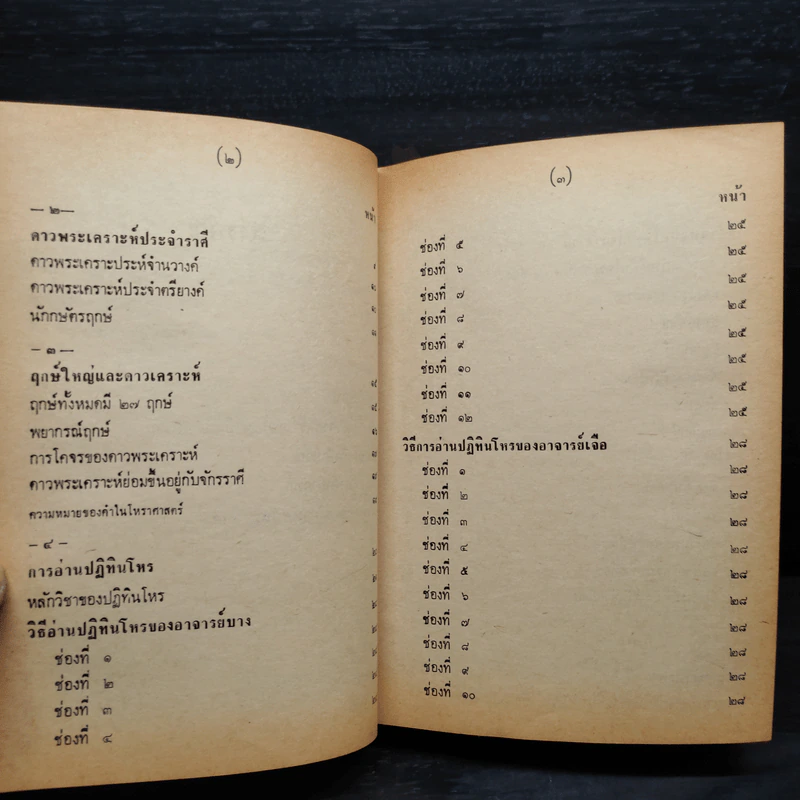 (๒)
— ๒ —
ดาวพระเคราะห์ประจำราศี
ดาวพระเคราะประห์จำนวางค์
ดาวพระเคราะห์ประจำตรียางค์
นักกษัตรฤกษ์
— ๓ —
ฤกษ์ใหญ่และดาวเคราะห์
ฤกษ์ทั้งหมดมี ๒๗ ฤกษ์
พยากรณ์ฤกษ์
การโคจรของดาวพระเคราะห์
ดาวพระเคราะห์ย่อมขึ้นอยู่กับจักรราศี
ความหมายของคำในโหราศาสตร์
— ๔ —
การอ่านปฏิทินโหร
หลักวิชาของปฏิทินโหร
วิธีอ่านปฏิทินโหรของอาจารย์บาง
ช่องที่ ๑
ช่องที่ ๒
ช่องที่ ๓
ช่องที่ ๔
(๓)
หน้า
ช่องที่ ๕ ๒๕
ช่องที่ ๖ ๒๕
ช่องที่ ๗ ๒๕
ช่องที่ ๘ ๒๕
ช่องที่ ๙ ๒๕
ช่องที่ ๑๐ ๒๕
ช่องที่ ๑๑ ๒๕
ช่องที่ ๑๒ ๒๕
วิธีการอ่านปฏิทินโหรของอาจารย์เจือ ๒๘
ช่องที่ ๑ ๒๘
ช่องที่ ๒ ๒๘
ช่องที่ ๓ ๒๘
ช่องที่ ๔ ๒๘
ช่องที่ ๕ ๒๘
ช่องที่ ๖ ๒๘
ช่องที่ ๗ ๒๘
ช่องที่ ๘ ๒๘
ช่องที่ ๙ ๒๘
ช่องที่ ๑๐ ๒๘